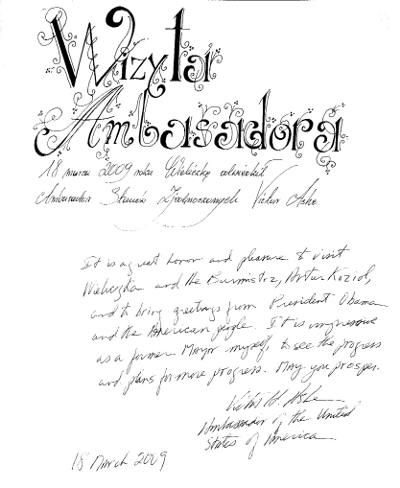 Wizyta
Ambasadora
18 marca 2009 roku Wieliczkę odwiedził
Ambasador Stanów Zjednoczonych Victor Ashe
It is a great honor and pleasure to visit
Wieliczka and the Burmistrz, Artur Kozioł,
and to bring greetings from President Obama
and the American people. It is impressive
as a former Mayor myself, to see the progress
and plans for more progress. May you prosper.
Victor H. Ashe
Ambassador of the United
States of America
18 March 2009